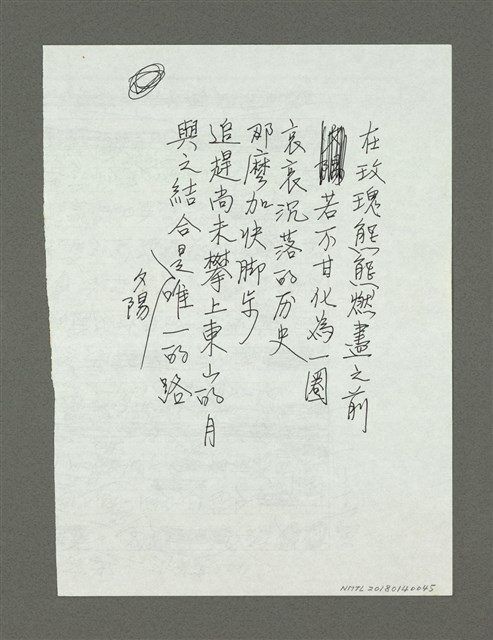 在玫瑰熊熊燃盡之前
若不甘化為一圈
哀哀沉落的历史
那麼加快脚步
追趕尚未攀上東山的月
與之結合是唯一的路
夕陽
NMTL 20180140045